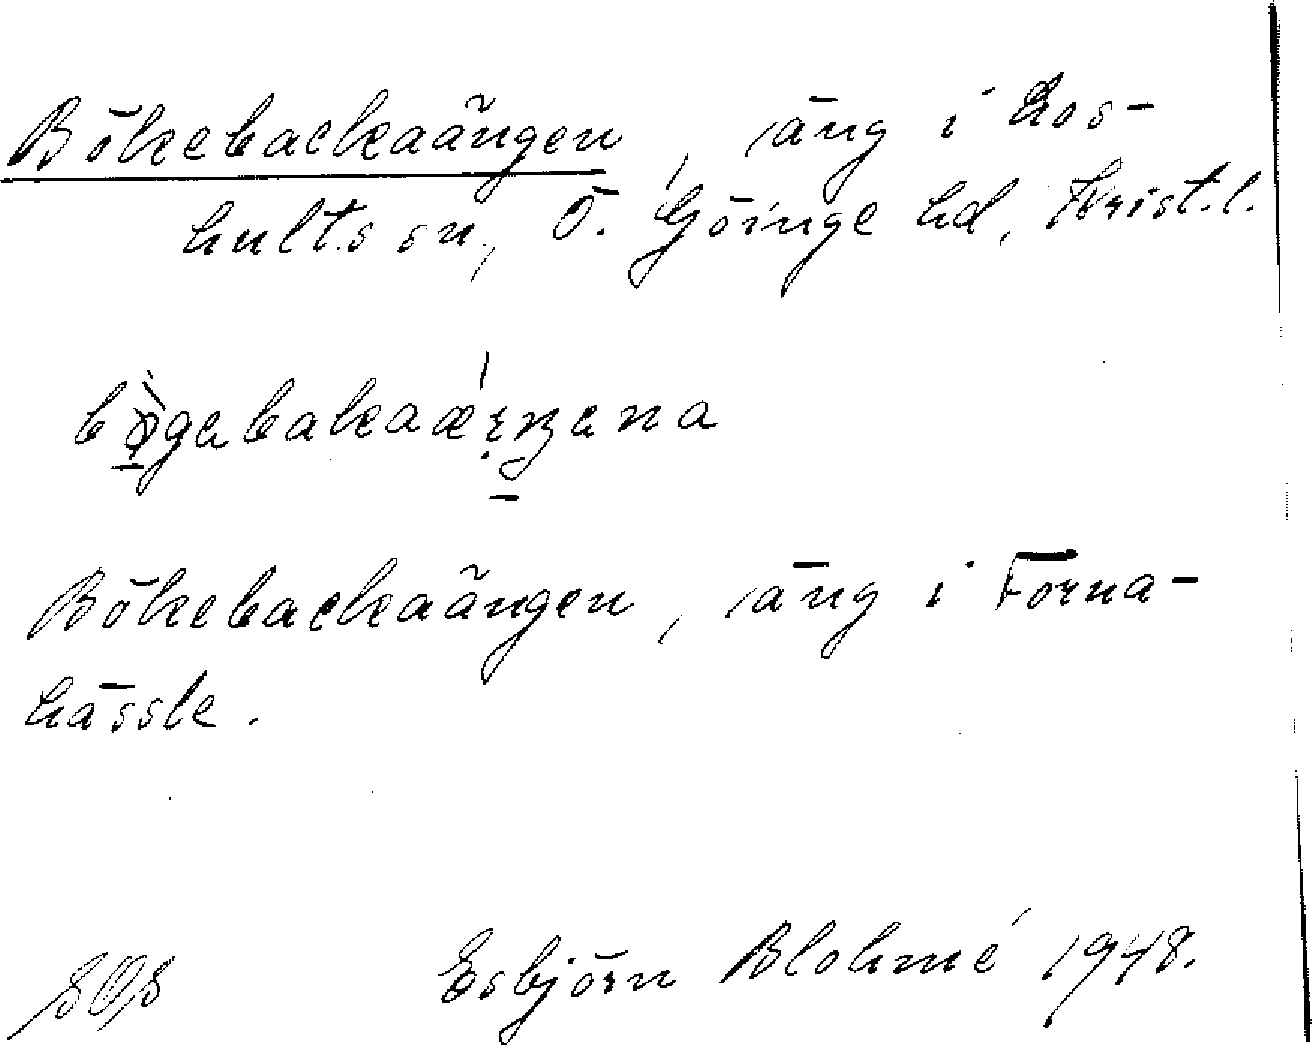 Bökebackaängen, äng i Los-
hults sn., Ö. Göinge hd, Krist. l.
Bökebackaängen, äng i Forna-
hässle.
Esbjörn Blohmé 1948.